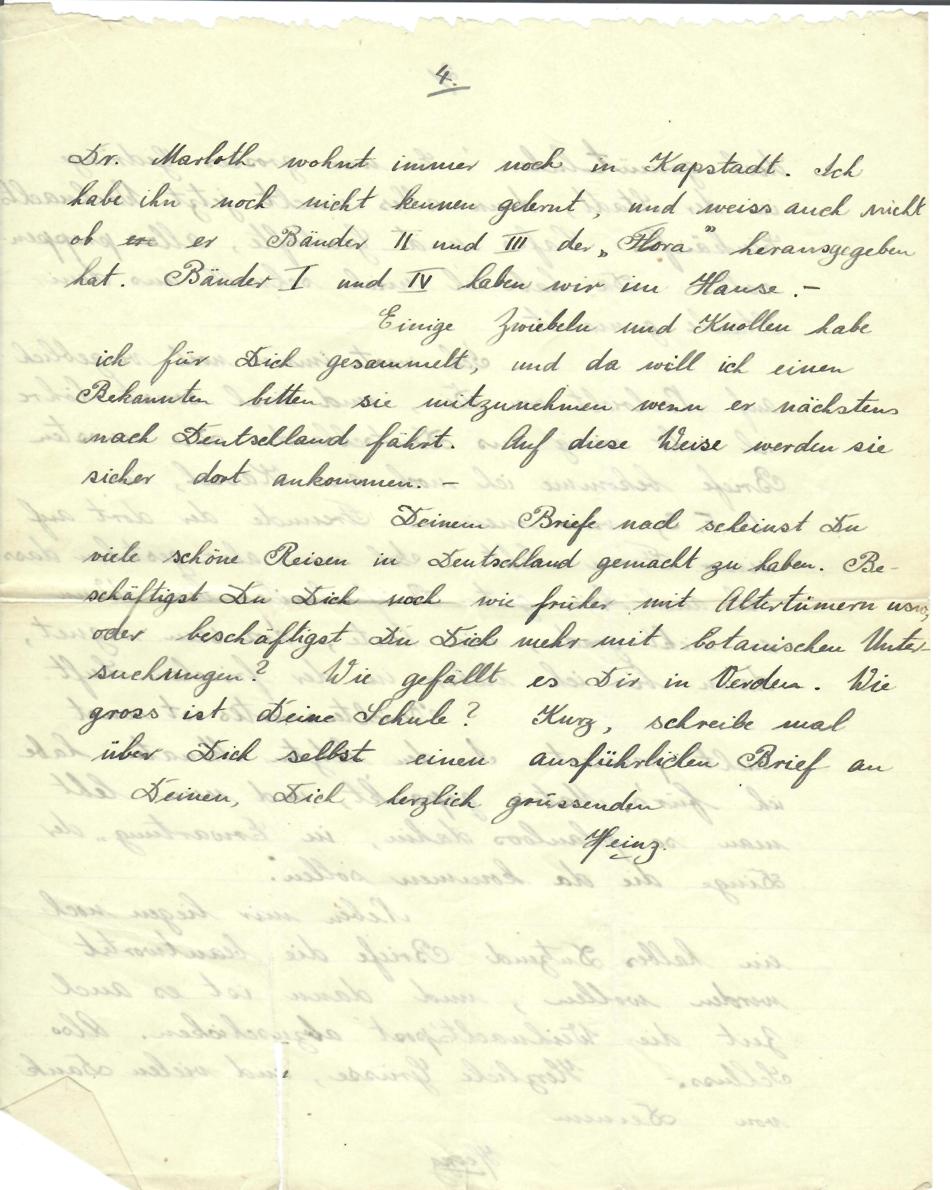 4.
Dr. Marloth wohnt immer noch in Kapstadt. Ich
habe ihn noch nicht kennen gelernt, und weiss auch nicht
ob er er Bänder II und III der „Flora" herausgegeben
hat. Bänder I und IV haben wir im Hause.-
Einige Zwiebeln und Knollen habe
ich für Dich gesammelt, und da will ich einen
Bekannten bitten sie mitzunehmen wenn er nächstens
nach Deutschland fährt. Auf diese Weise werden sie
sicher dort ankommen. -
Deinem Briefe nach scheinst Du
viele schöne Reisen in Deutschland gemacht zu haben. Be-
schäftigst Du Dich noch wie früher mit Altertümern usw,
oder beschäftigst Du Dich mehr mit botanischen Unter-
suchungen? Wie gefällt es Dir in Verden. Wie
gross ist Deine Schule? Kurz, schreibe mal
über Dich selbst einen ausführlichen Brief an
Deinen, Dich herzlich grüssenden
Heinz.